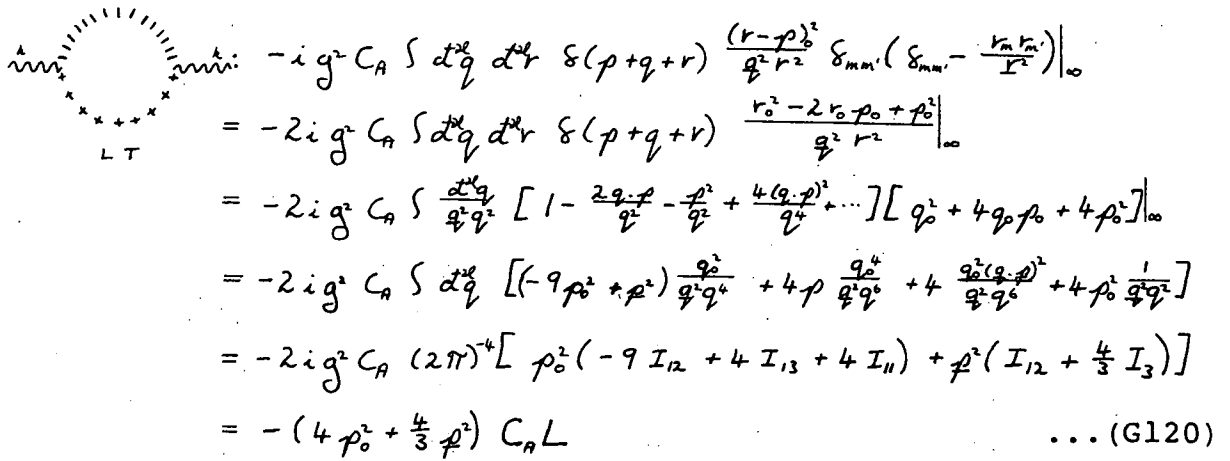 k k : -i g² C_A ∫ d^{2l}q d^{2l}r δ(p+q+r) \frac{(r-p)_0^2}{\underline{q}^2 r^2} δ_{mm'} (δ_{mm'} - \frac{r_m r_{m'}}{\underline{r}^2})|_∞
L T
= -2i g² C_A ∫ d^{2l}q d^{2l}r δ(p+q+r) \frac{r_0^2 - 2 r_0 p_0 + p_0^2}{\underline{q}^2 r^2}|_∞
= -2i g² C_A ∫ \frac{d^{2l}q}{\underline{q}^2 q^2} [1 - \frac{2q·p}{q^2} - \frac{p^2}{q^2} + \frac{4(q·p)^2}{q^4} + ···][q_0^2 + 4q_0 p_0 + 4p_0^2]|_∞
= -2i g² C_A ∫ d^{2l}q [(-9p_0^2 + \underline{p}^2) \frac{q_0^2}{\underline{q}^2 q^4} + 4p \frac{q_0^4}{\underline{q}^2 q^6} + 4 \frac{q_0^2 (\underline{q}·\underline{p})^2}{\underline{q}^2 q^6} + 4p_0^2 \frac{1}{\underline{q}^2 q^2}]
= -2i g² C_A (2π)^{-4} [p_0^2 (-9 I_{12} + 4 I_{13} + 4 I_{11}) + \underline{p}^2 (I_{12} + \frac{4}{3} I_3)]
= -(4p_0^2 + \frac{4}{3} \underline{p}^2) C_A L ...(G120)